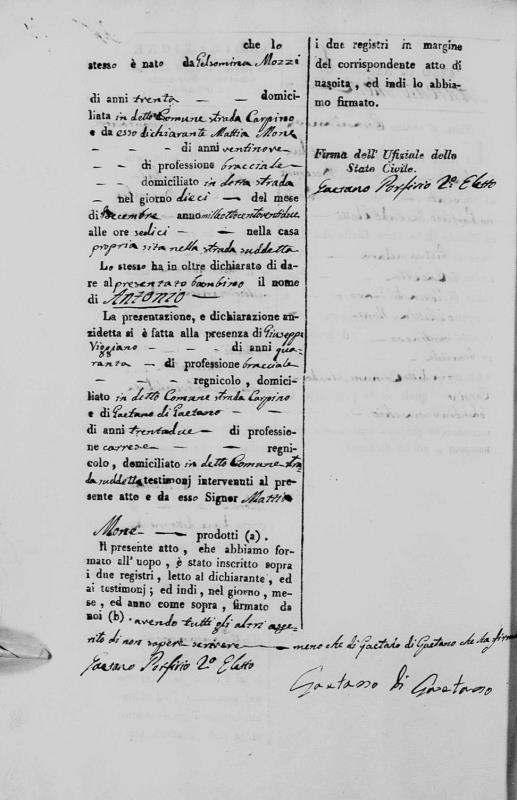 che lo
stesso è nato da Gelsomina Mozzi
di anni trenta — — domici-
liata in detto Comune strada Carpino
e da esso dichiarante Mattia Mone
- - - di anni ventinove
- - di professione bracciale -
- - domiciliato in detta strada
- nel giorno dieci — del mese
di Decembre anno milleottocentoventidue
alle ore sedici - - nella casa
propria sita nella strada suddetta
Lo stesso ha in oltre dichiarato di da-
re al presentato bambino il nome
di Antonio —
La presentazione, e dichiarazione an-
zidetta si è fatta alla presenza di Giuseppe
Viggiano - - - di anni qua-
ranta — di professione bracciale
- - - regnicolo, domici-
liato in detto Comune strada Carpino
e di Gaetano di Gaetano - -
di anni trentadue — di professio-
ne carrese — - regni-
colo, domiciliato in detto Comune stra
da suddetta testimonj intervenuti al pre-
sente atto e da esso Signor Mattia
Mone — prodotti (a).
Il presente atto, che abbiamo for-
mato all'uopo, è stato inscritto sopra
i due registri, letto al dichiarante, ed
ai testimonj; ed indi, nel giorno, me-
se, ed anno come sopra, firmato da
noi (b). avendo tutti gli altri asse-
rito di non sapere scrivere — meno che di Gaetano di Gaetano che
Gaetano Porfirio 2º Eletto
Gaetano di Gaetano
i due registri in margine
del corrispondente atto di
nascita, ed indi lo abbia-
mo firmato.
Firma dell' Ufiziale dello
Stato Civile.
Gaetano Porfirio 2º Eletto